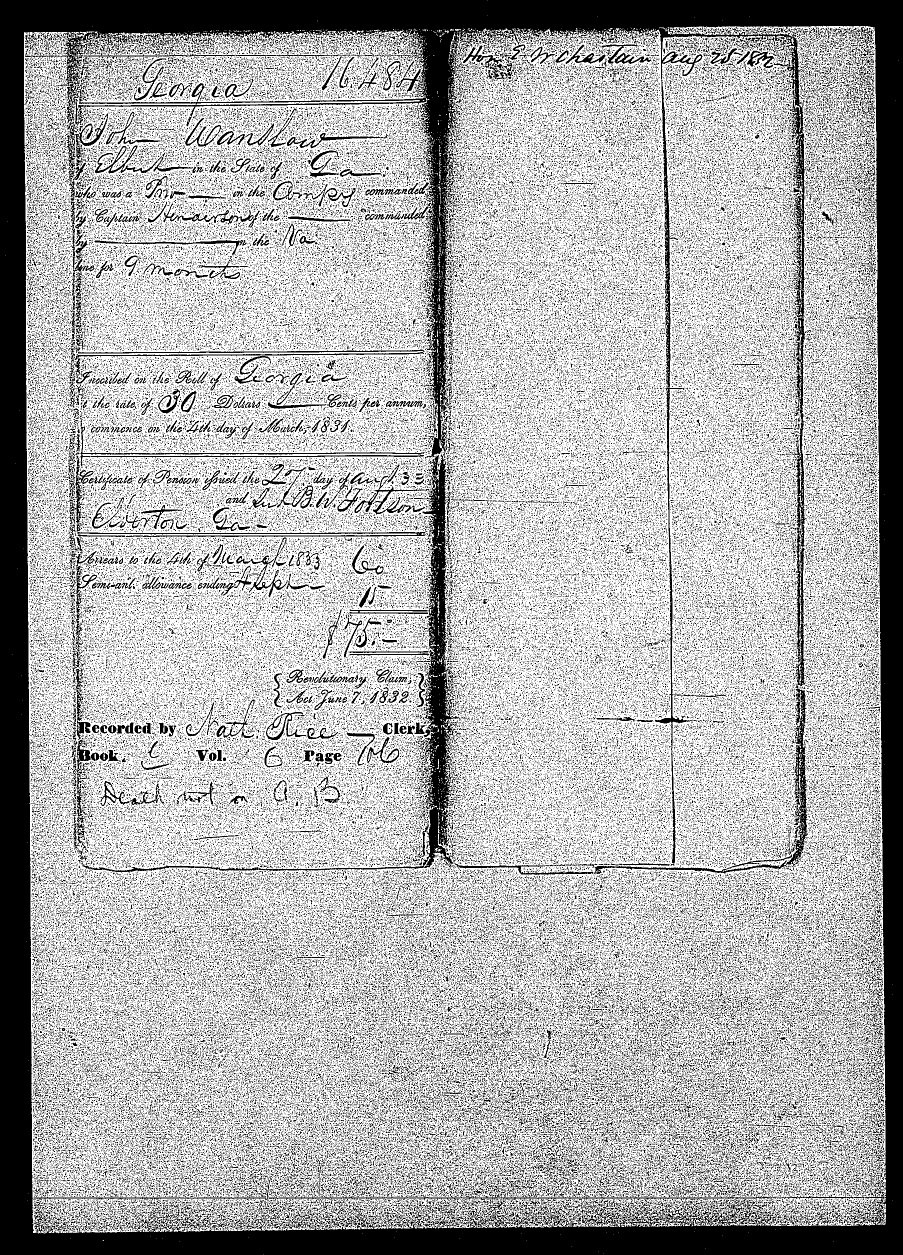 Georgia 16.484
John Wanslow
of Elbert in the State of Ga.
who was a Priv in the Compy commanded
by Captain Henderson of the commanded
by in the Va
line for 9 months
Inscribed on the Roll of Georgia
at the rate of 30 Dollars Cents per annum,
to commence on the 4th day of March, 1831.
Certificate of Pension issued the 27 day of Augt. 33
and sent B. W. Fortson
Elberton Ga -
Arrears to the 4th of March 1833 60
Semi-anl. allowance ending 4 Sept 15
$75.-
{Revolutionary Claim,}
{Act June 7, 1832.}
Recorded by Nath. Rice Clerk,
Book. E Vol. 6 Page 76
Death not on A. B
Hon E W Chastain Aug 25